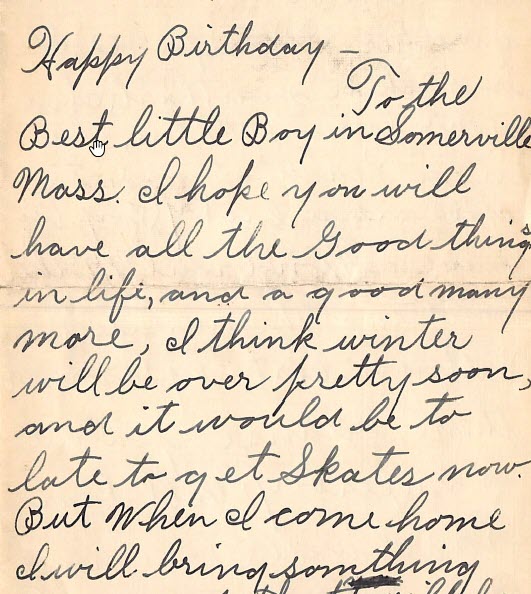 Happy Birthday –
To the
Best little Boy in Somerville
Mass. I hope you will
have all the Good things
in life, and a good many
more, I think winter
will be over pretty soon,
and it would be to
late to get Skates now.
But When I come home
I will bring somthing